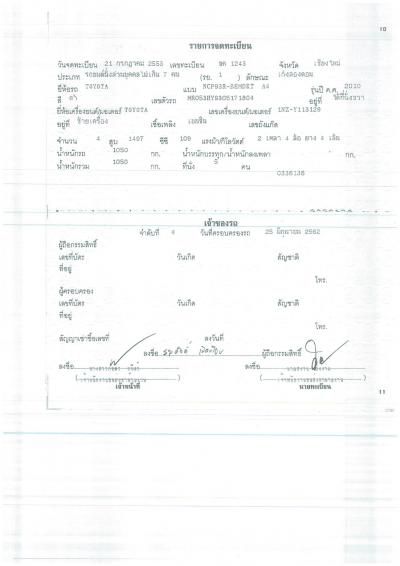 10
รายการจดทะเบียน
วันจดทะเบียน 21 กรกฎาคม 2553 เลขทะเบียน 1243 จังหวัด เชียงใหม่
ประเภท รถยนต์นั่งส่วนบุคคลไม่เกิน 7 คน (รย. 1 ) ลักษณะ เก๋งสองตอน
ยี่ห้อรถ TOYOTA แบบ รุ่นปี ค.ศ. 2010
สี เลขตัวรถ MR053HY9305171804 อยู่ที่
ยี่ห้อเครื่องยนต์/มอเตอร์ TOYOTA เลขเครื่องยนต์/มอเตอร์ 1NZ-Y113129
อยู่ที่ ซ้ายเครื่อง เชื้อเพลิง เบนซิน เลขถังแก๊ส
จำนวน 4 สูบ 1497 ซีซี 109 แรงม้า/กิโลวัตต์ 2 เพลา 4 ล้อ ยาง 4 เส้น
น้ำหนักรถ 1050 กก. น้ำหนักบรรทุก/น้ำหนักลงเพลา กก.
น้ำหนักรวม 1050 กก. ที่นั่ง 5 คน
0336138
เจ้าของรถ
ลำดับที่ 4 วันที่ครอบครองรถ 25 มิถุนายน 2562
ผู้ถือกรรมสิทธิ์
เลขที่บัตร วันเกิด สัญชาติ
ที่อยู่
โทร.
ผู้ครอบครอง
เลขที่บัตร วันเกิด สัญชาติ
ที่อยู่
โทร.
สัญญาเช่าซื้อเลขที่ ลงวันที่
ลงชื่อ ผู้ถือกรรมสิทธิ์
ลงชื่อ ลงชื่อ
เจ้าหน้าที่ นายทะเบียน
11